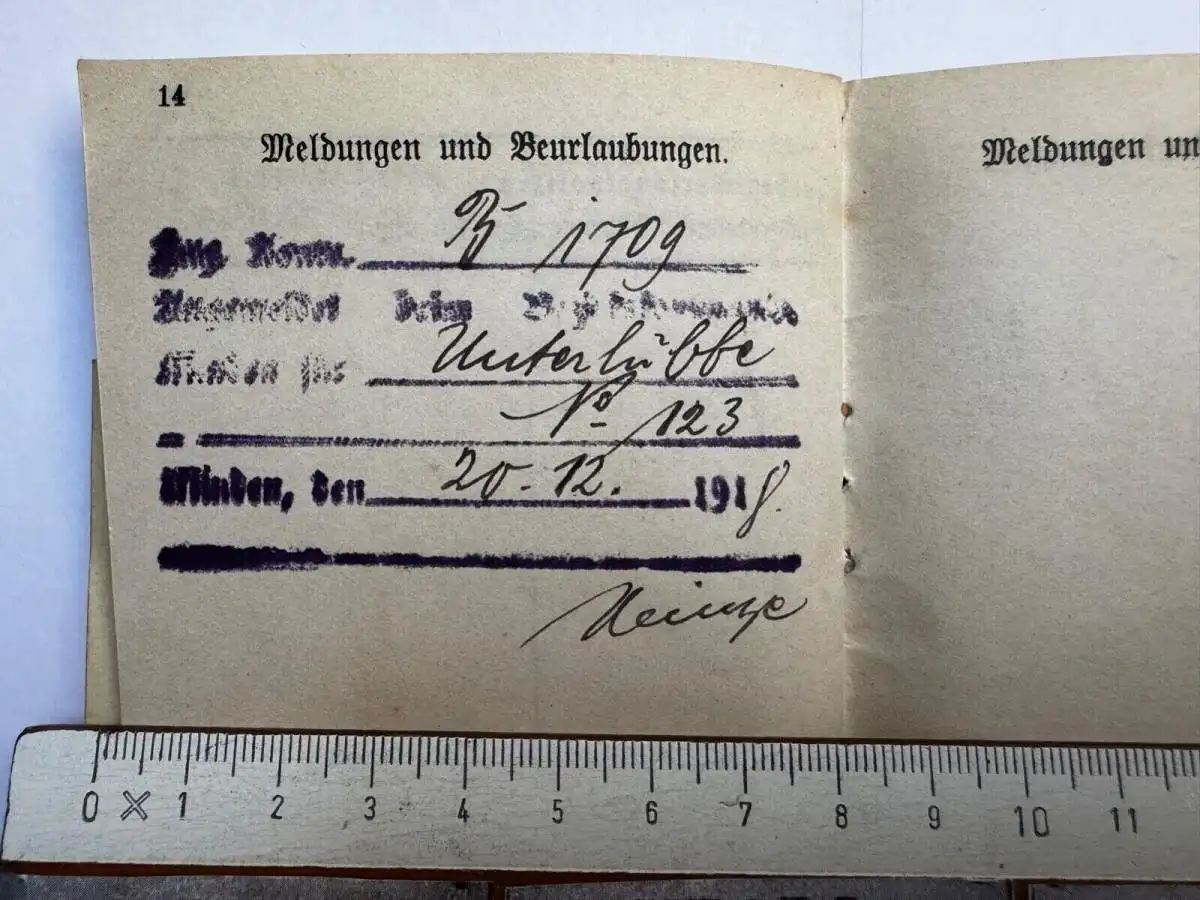 14
Meldungen und Beurlaubungen.
Meldungen un
1709
Angemeldet beim Bezirkskommando
Minden für Unterlübbe
No 123
Minden, den 20.12. 1918.
0 1 2 3 4 5 6 7 8 9 10 11